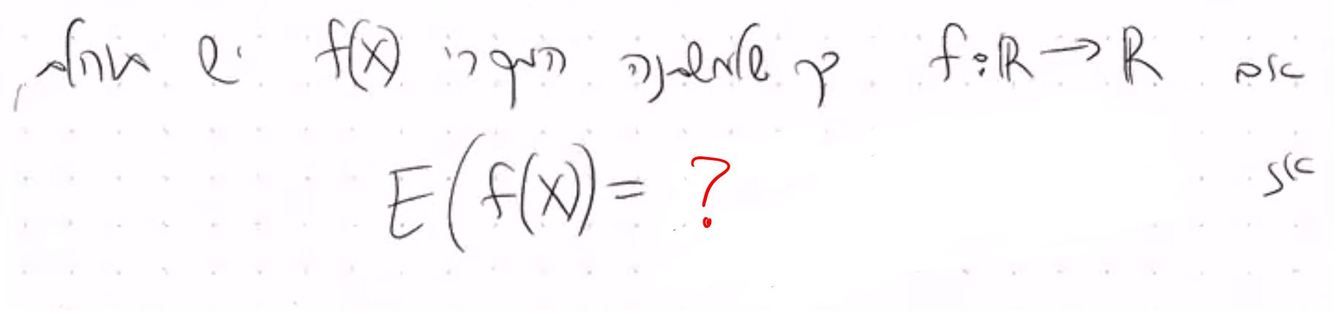 אם f:ℝ→ℝ כך שלמשתנה המקרי f(X) יש תוחלת,
אז
E(f(X)) = ?